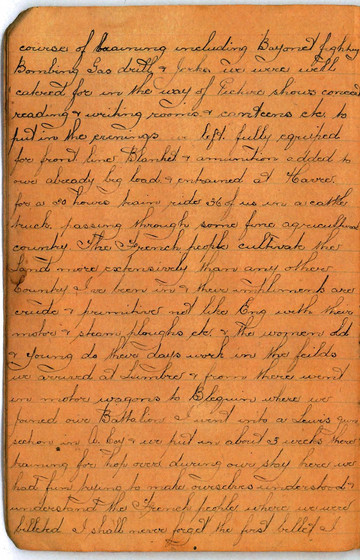 course of training including Bayonet fighting
Bombing Gas drill & Jerks. we were well
catered for in the way of Picture shows concerts
reading & writing rooms & canteens etc to
put in the evenings we left fully equiped
for front line Blanket & amunition added to
our already big load & entrained at Havre
for a 20 hours train ride 36 of us in a cattle
truck. passing through some fine agricultural
country The French people cultivate the
land more extensively than any other
Country I've been in & their impliments are
crude & primitive not like Eng with their
motor & steam ploughs etc & the women old
& young do their days work in the feilds
we arrived at Lumbre & from there went
in motor wagons to Blequin where we
joined our Battalion I went into a Lewis gun
section in C Coy & we put in about 3 weeks there
training for hop over during our stay here we
had fun trying to make ourselves understood &
understand the French people where we were
billeted I shall never forget the first billet I